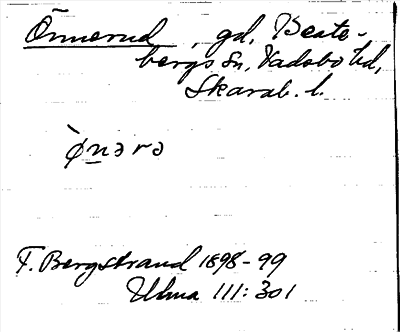 Önnerud, gd, Beate-
bergs sn, Vadsbo hd,
Skarab. l.
ø̀nərə
F. Bergstrand 1898-99
Ulma 111:301